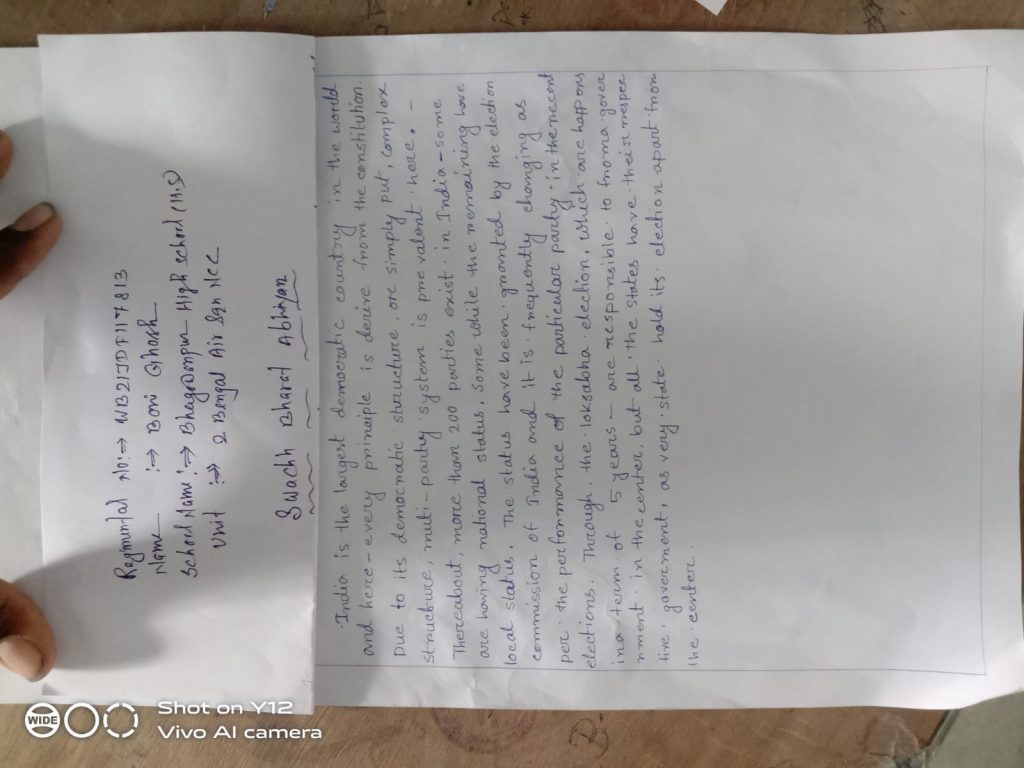 Regimental No:→ WB21JDF117813
Name :→ Boni Ghosh
School Name :→ Bhagwanpur High School (H.S)
Unit :→ 2 Bengal Air Sqn NCC
Swachh Bharat Abhiyan
India is the largest democratic country in the world
and here-every principle is derive from the constitution.
Due to its democratic structure, are simply put, complex
structure, multi-party system is prevalent here. -
Thereabout, more than 200 parties exist in India-some
are having national status, some while the remaining have
local status. The status have been granted by the election
commission of India and it is frequently changing as
per the performance of the particular party in the recent
elections. Through, the loksabha election, which are happens
in a term of 5 years - are responsible to froma gover
nment in the center, but all the states have their respec
tive government, as very state hold its election apart from
the center.
WIDE
Shot on Y12
Vivo AI camera